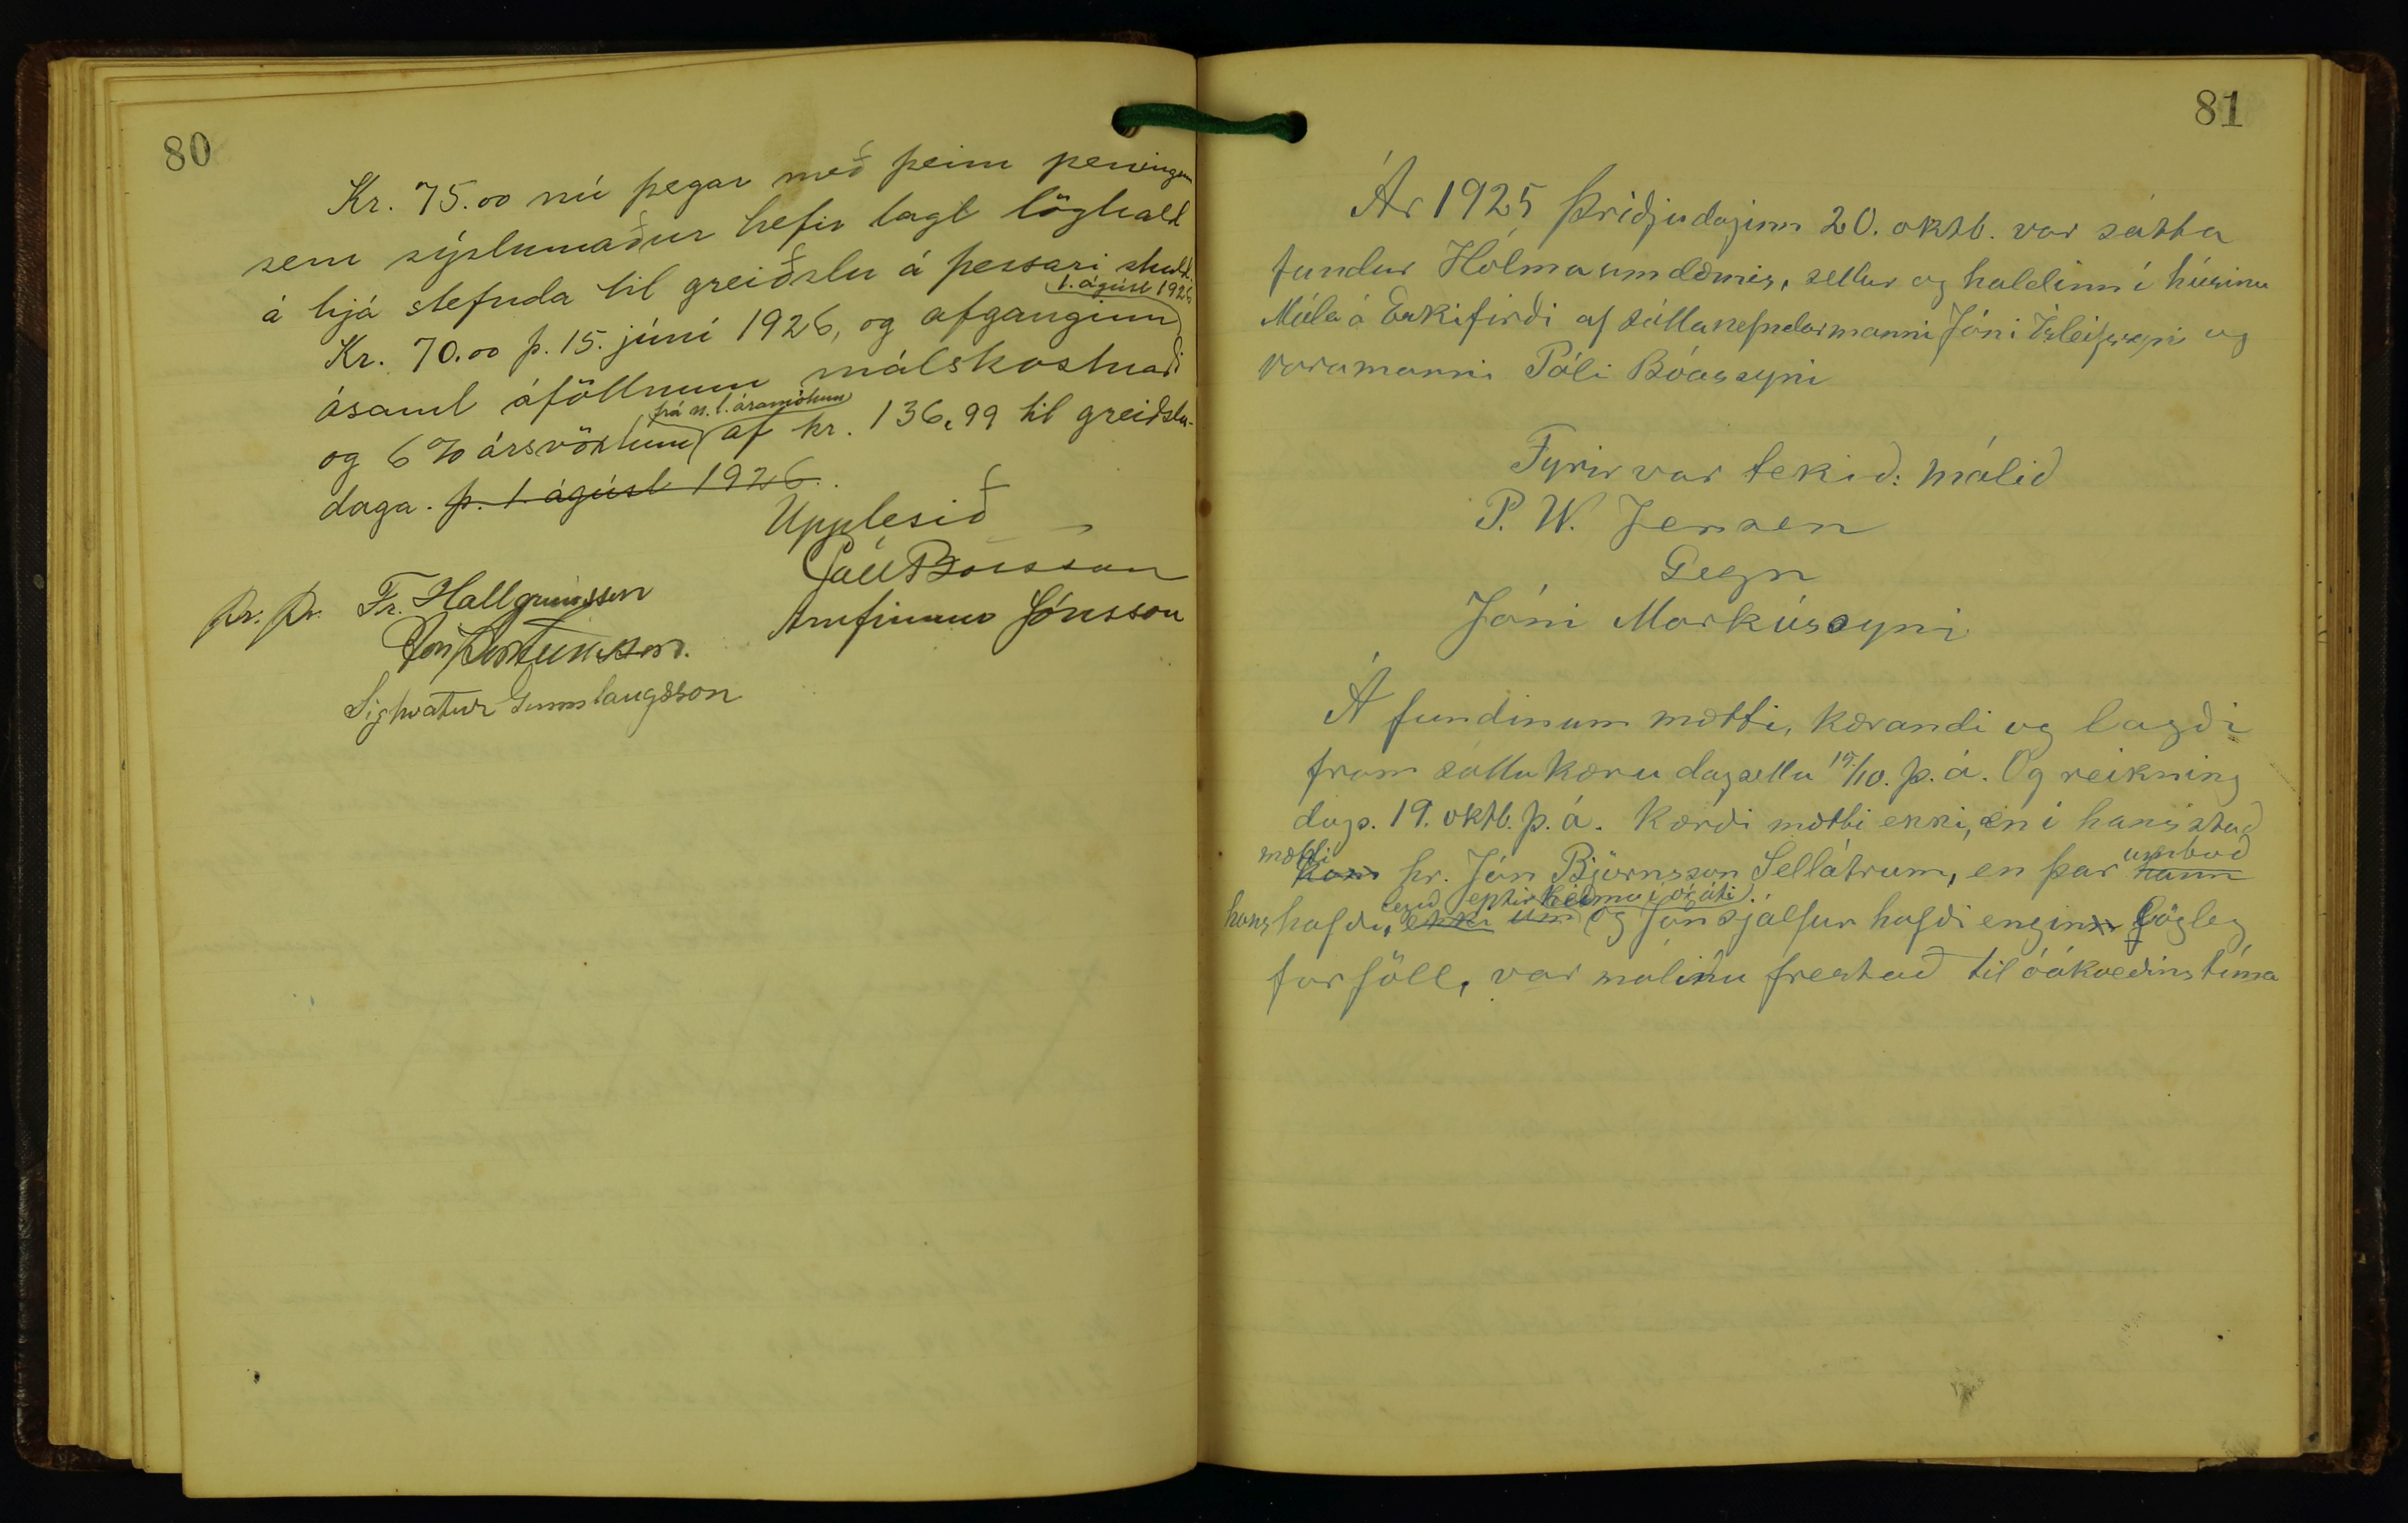 80
Kr. 75.00 nú þegar með þeim peningum
sem sýslumaður hefir lagt löghald
á hjá stefnda til greiðslu á þessari skuld.
1. ágúst 1926
Kr. 70.00 þ. 15. júní 1926, og afganginn
ásamt áföllnum málskostnaði
frá n.l. áramótum
og 6% ársvöxtum af kr. 136,99 til greiðslu-
daga. þ. 1. ágúst 1926.
Upplesið
Páll Bóasson
pr. pr. Fr. Hallgrímsson
Arnfinnur Jónsson
Sighvatur Gunnlaugsson
81
Ár 1925 Þriðjudaginn 20. oktb. var sátta
fundur Hólmaumdæmis, settur og haldinn í húsinu
Múla á Eskifirði af sáttanefndarmanni Jóni Ísleifssyni og
varamanni Páli Bóassyni
Fyrir var tekið: málið
P. W. Jensen
Gegn
Jóni Markússyni
Á fundinum mætti, kærandi og lagði
fram sáttakæru dagsetta 19/10. þ. á. Og reikning
dags. 19. oktb. þ. á. Kærði mætti ekki, en í hans stað
mætti umboð
kom hr. Jón Björnsson Sellátrum, en þar hann
legið eptir heima í ógáti
hans hafði, ekki um og Jón sjálfur hafði engin lögleg
forföll, var málinu frestað til óákveðins tíma